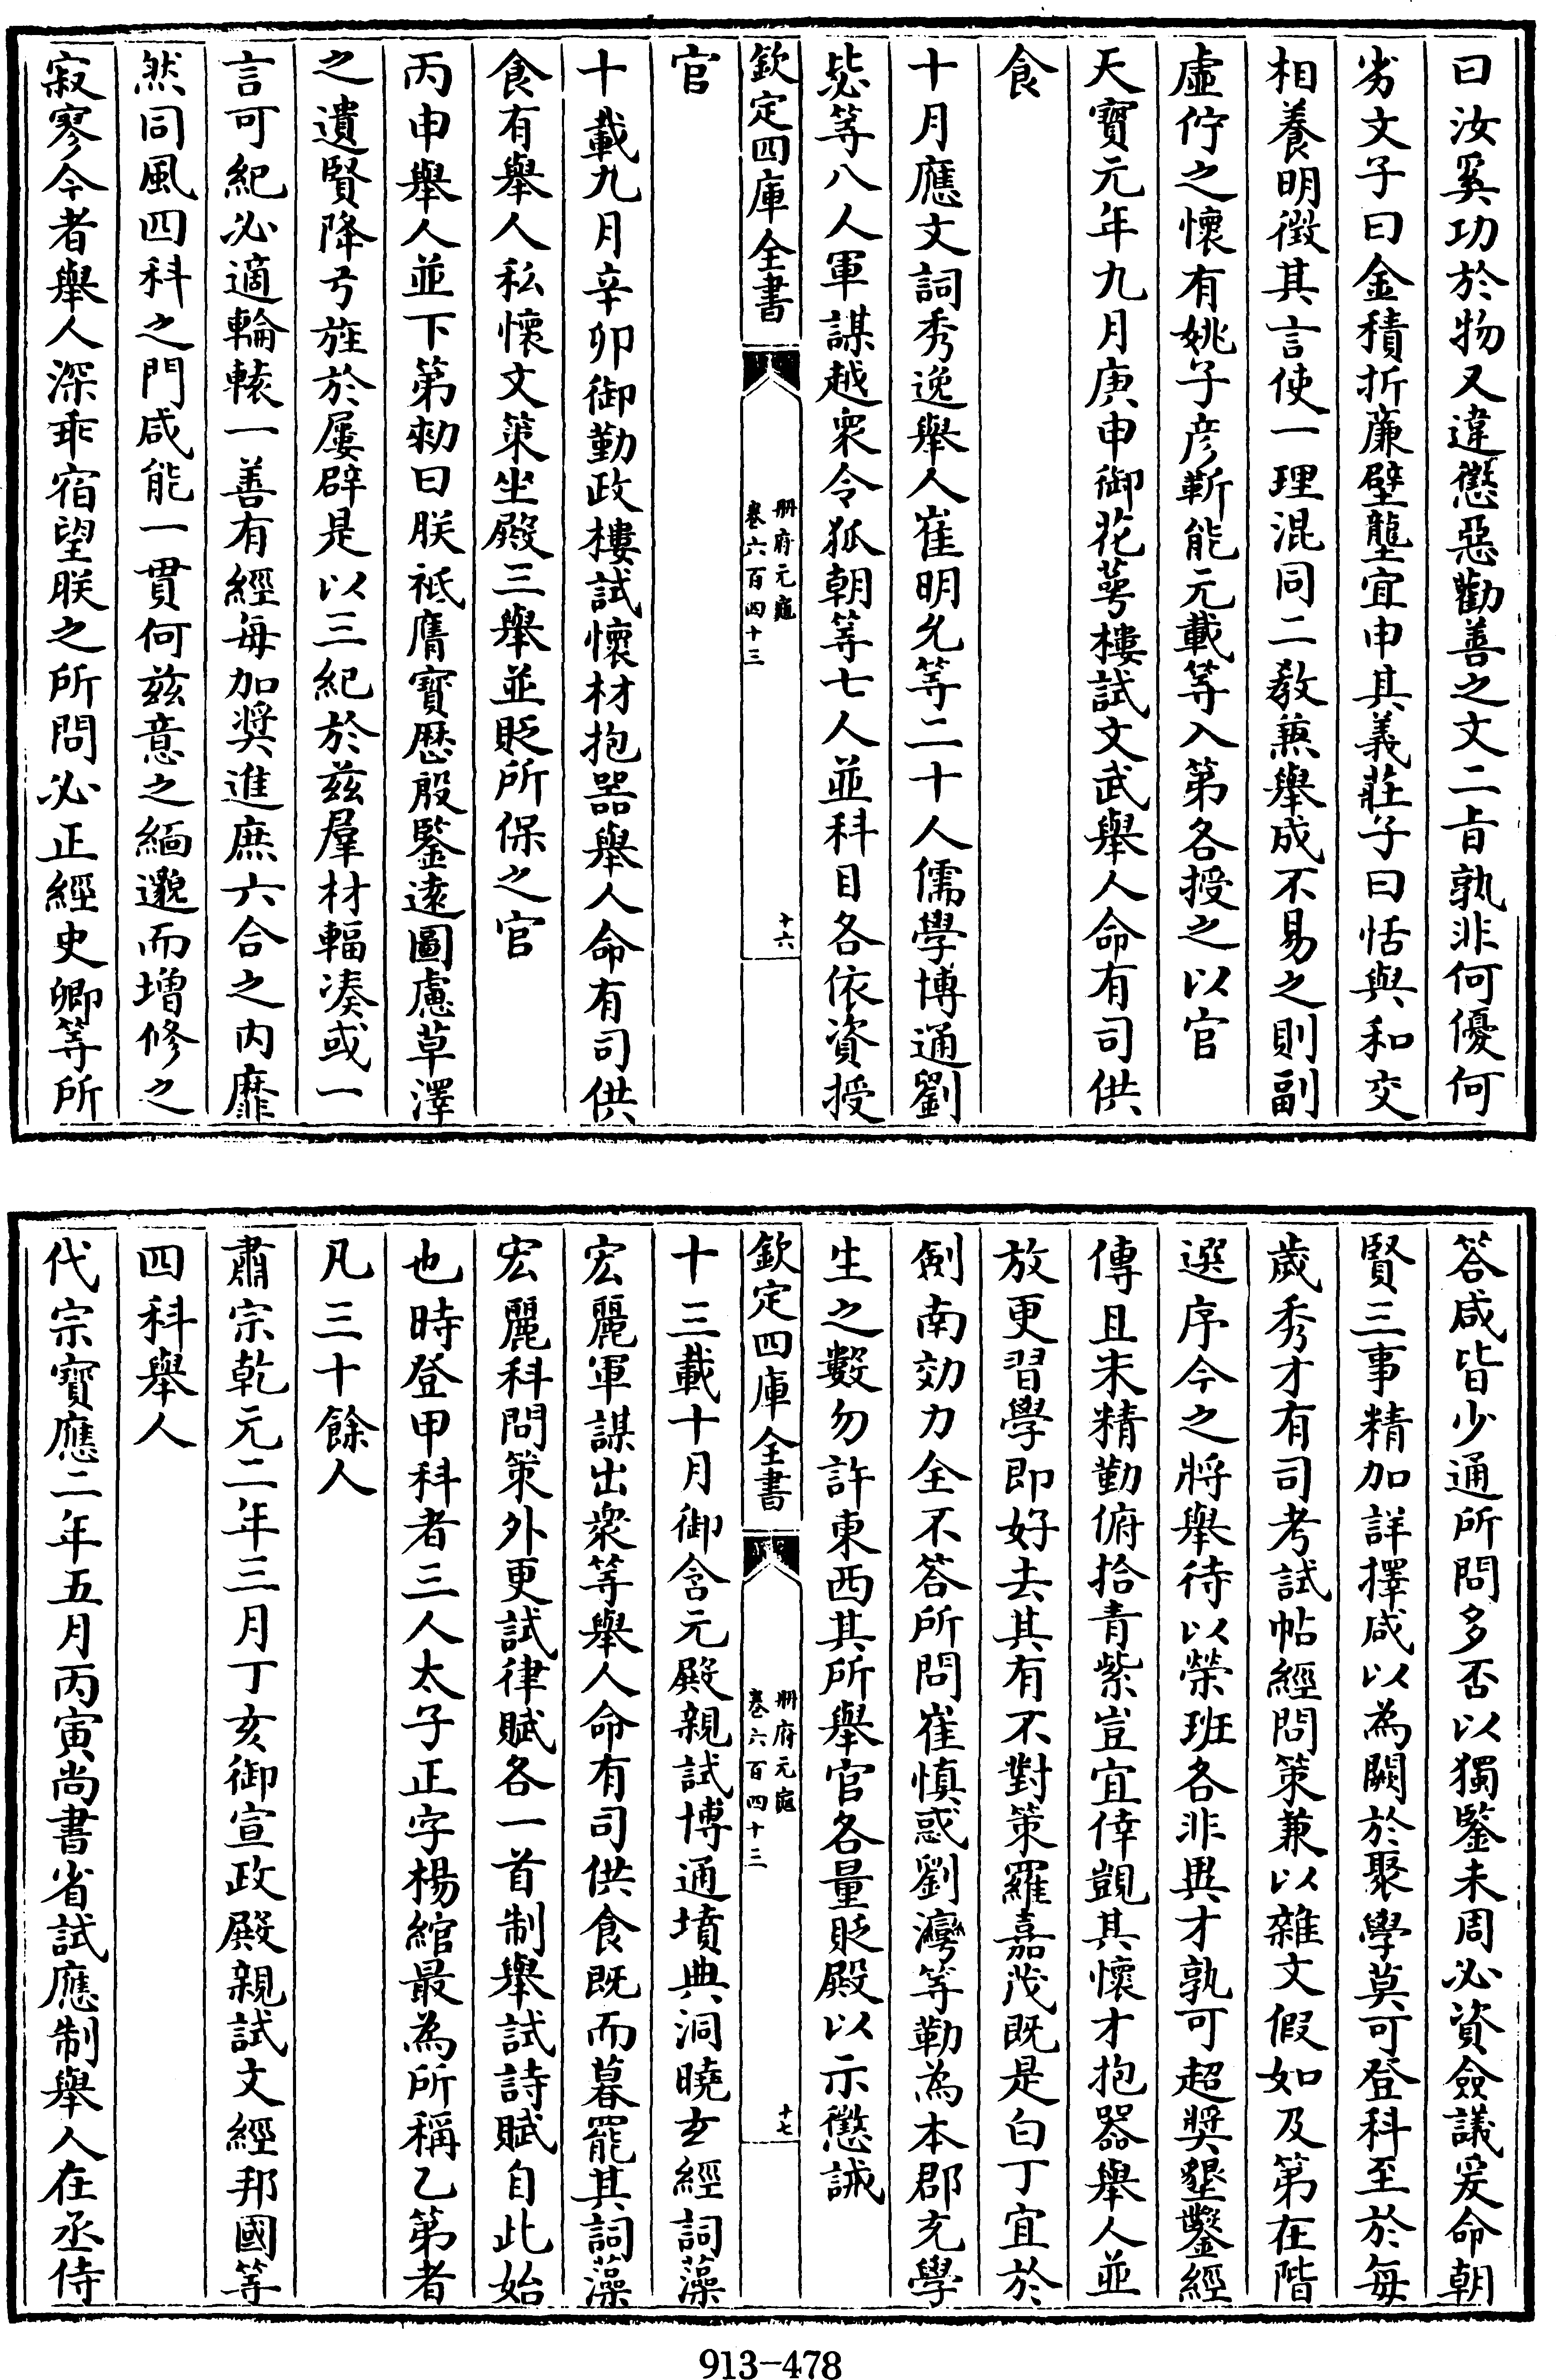 曰汝奚功於物又違懲惡勸善之文二㫖孰非何優何
劣文子曰金積折㢘壁壟宜申其義莊子曰恬與和交
相養明徴其言使一理混同二教兼舉成不易之則副
虛佇之懷有姚子彦靳能元載等入第各授之以官
天寶元年九月庚申御花萼樓試文武舉人命有司供
食
十月應文詞秀逸舉人崔明允等二十人儒學博通劉
毖等八人軍謀越衆令狐朝等七人並科目各依資授
欽定四庫全書
册府元龜
卷六百四十三
十六
官
十載九月辛卯御勤政樓試懷材抱器舉人命有司供
食有舉人私懷文策坐殿三舉並貶所保之官
丙申舉人並下第勅曰朕祗膺寳厯殷鑒逺圖慮草澤
之遺賢降弓旌於屢辟是以三紀於兹羣材輻凑或一
言可紀必適輪轅一善有經每加奨進庶六合之内靡
然同風四科之門咸能一貫何兹意之緬邈而增修之
寂寥今者舉人深乖宿望朕之所問必正經史卿等所
答咸皆少通所問多否以獨鑒未周必資僉議爰命朝
賢三事精加詳擇咸以為闕於聚學莫可登科至於每
歲秀才有司考試帖經問策兼以雜文假如及第在階
選序今之將舉待以榮班各非異才孰可超奨墾鑿經
傳且未精勤俯拾青紫豈宜倖覬其懷才抱器舉人並
放更習學即好去其有不對策羅嘉茂既是白丁宜於
劍南効力全不答所問崔慎惑劉灣等勒為本郡充學
生之數勿許東西其所舉官各量貶殿以示懲誡
欽定四庫全書
册府元龜
卷六百四十三
十七
十三載十月御含元殿親試博通墳典洞曉𤣥經詞藻
宏麗軍謀出衆等舉人命有司供食既而暮罷其詞藻
宏麗科問策外更試律賦各一首制舉試詩賦自此始
也時登甲科者三人太子正字楊綰最為所稱乙第者
凡三十餘人
肅宗乾元二年三月丁亥御宣政殿親試文經邦國等
四科舉人
代宗寳應二年五月丙寅尚書省試應制舉人在丞侍
913-478